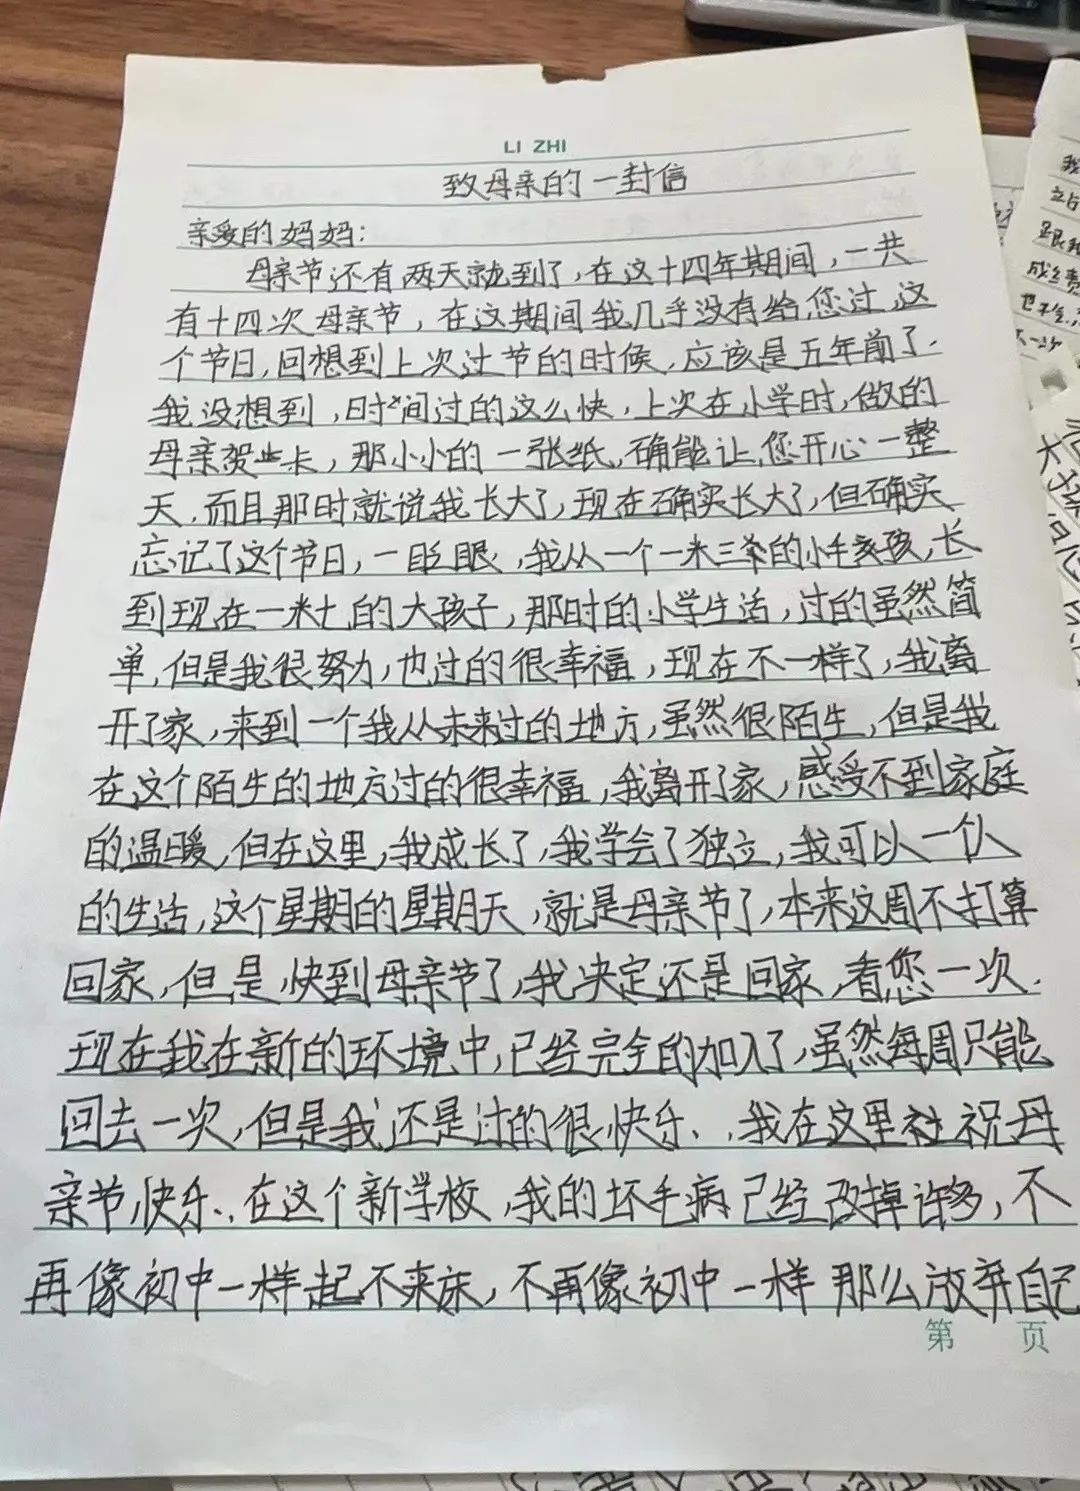 LI ZHI
致母亲的一封信
亲爱的妈妈：
母亲节还有两天就到了，在这十四年期间，一共
有十四次母亲节，在这期间我几乎没有给您过这
个节日，回想到上次过节的时候，应该是五年前了.
我没想到，时间过的这么快，上次在小学时，做的
母亲贺卡，那小小的一张纸，确能让您开心一整
天，而且那时就说我长大了，现在确实长大了，但确实
忘记了这个节日，一眨眼，我从一个一米三的小毛孩，长
到现在一米七的大孩子，那时的小学生活，过的虽然简
单，但是我很努力，也过的很幸福，现在不一样了，我离
开了家，来到一个我从未来过的地方，虽然很陌生，但是我
在这个陌生的地方过的很幸福，我离开了家，感受不到家庭
的温暖，但在这里，我成长了，我学会了独立，我可以一个人
的生活，这个星期的星期天，就是母亲节了，本来这周不打算
回家，但是，快到母亲节了，我决定还是回家，看您一次.
现在我在新的环境中，已经完全的加入了，虽然每周只能
回去一次，但是我还是过的很快乐、，我在这里祝母
亲节快乐、在这个新学校，我的坏毛病已经改掉许多，不
再像初中一样起不来床，不再像初中一样那么放弃自己
第 页